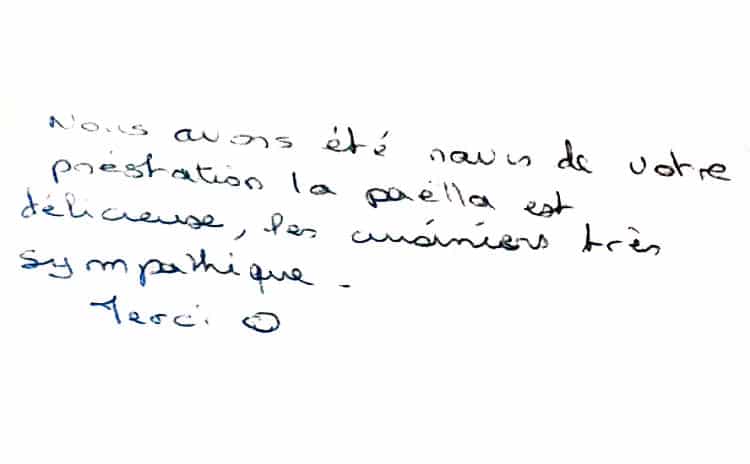 Nous avons été ravis de votre
préstation la paëlla est
délicieuse, les cuisiniers très
sympathique.
Merci ☺